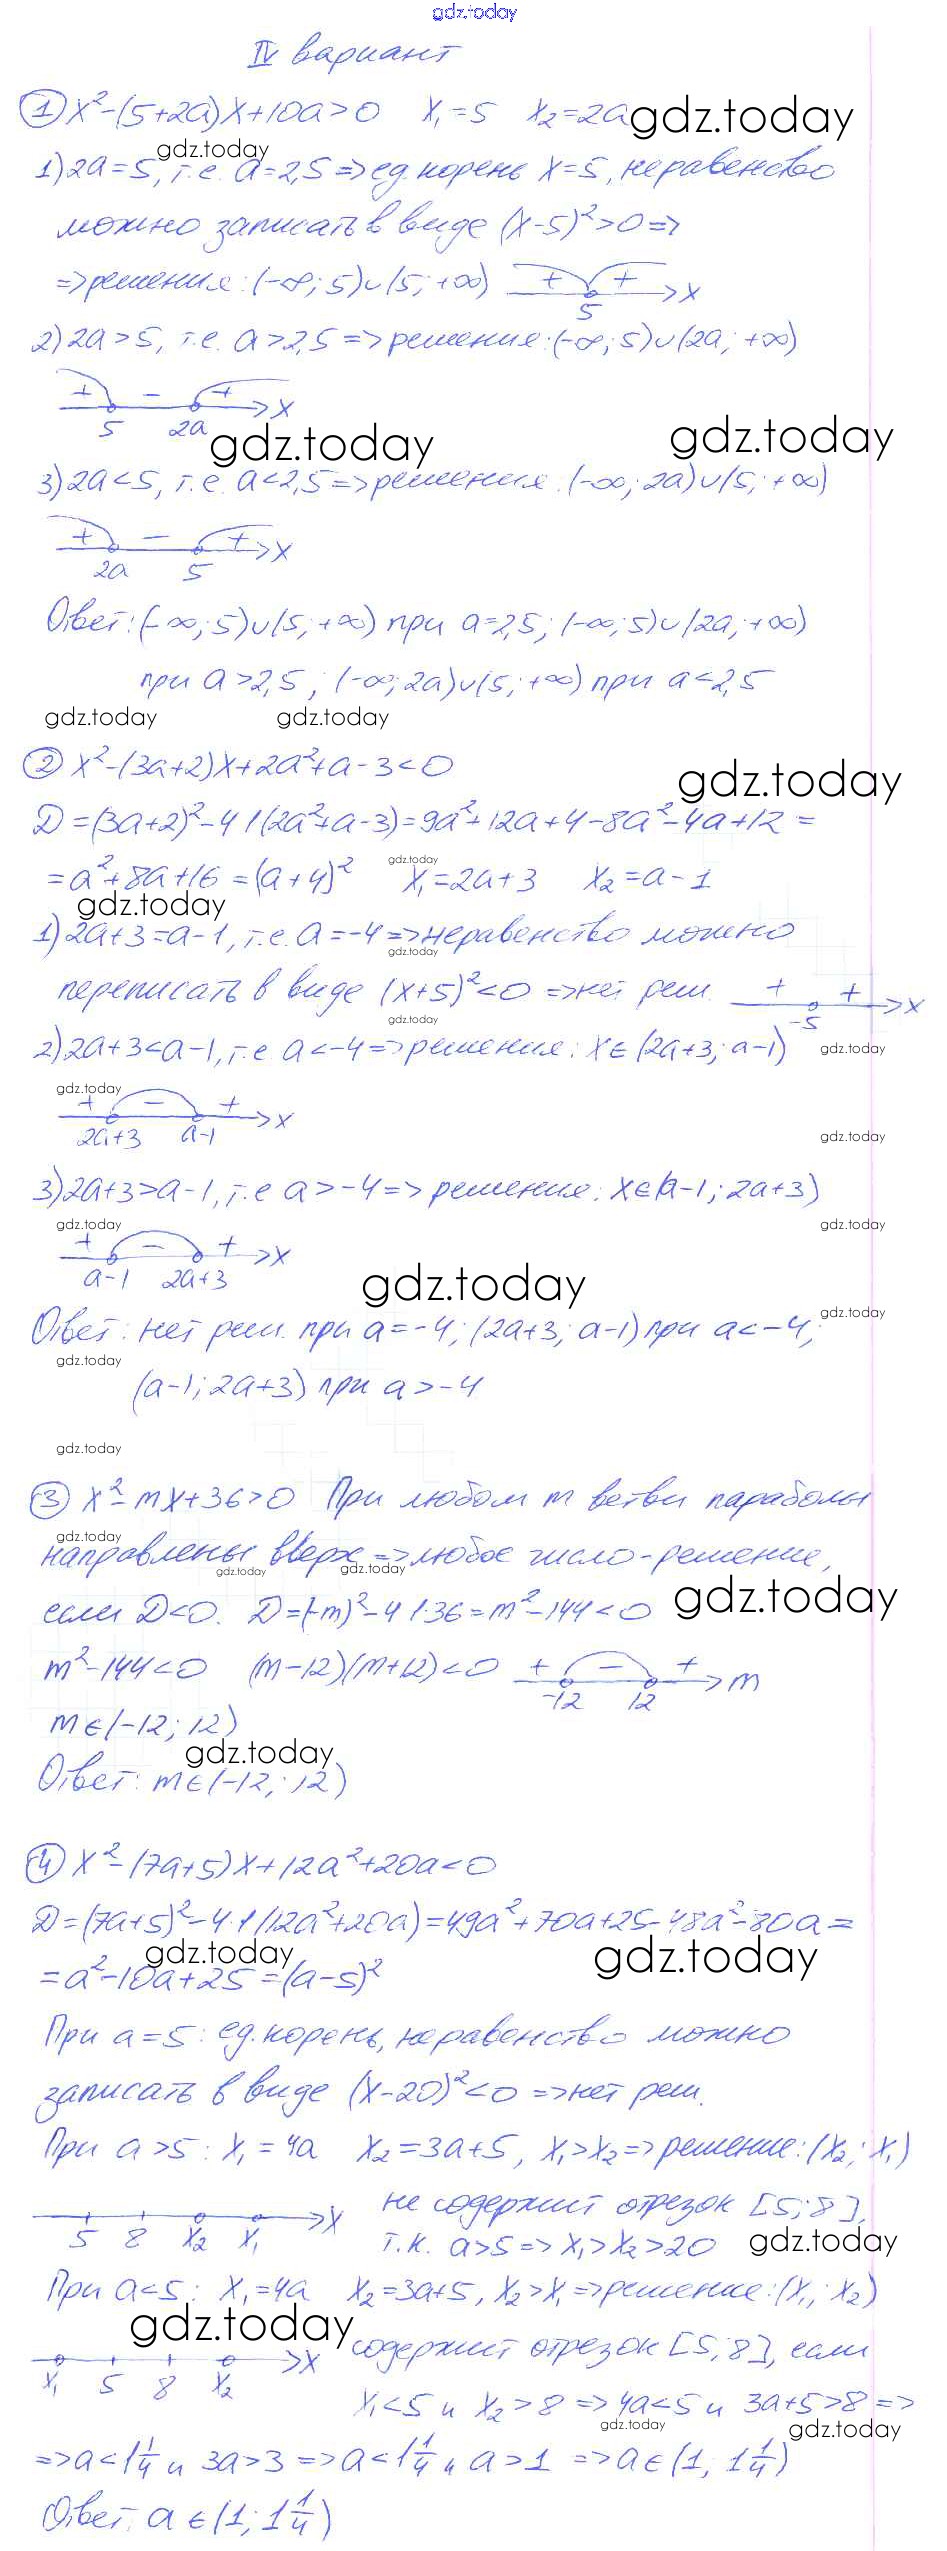 gdz.today
IV вариант
① x²-(5+2a)x+10a>0 x₁=5 x₂=2a gdz.today
gdz.today
1) 2a=5, т.е. a=2,5 => ед. корень x=5, неравенство
можно записать в виде (x-5)²>0 =>
=> решения: (-∞; 5)∪(5; +∞) + + 5 x
2) 2a>5, т.е. a>2,5 => решение: (-∞; 5)∪(2a; +∞)
+ - + x
5 2a
gdz.today gdz.today
3) 2a<5, т.е. a<2,5 => решения: (-∞; 2a)∪(5; +∞)
+ - + x
2a 5
Ответ: (-∞; 5)∪(5; +∞) при a=2,5; (-∞; 5)∪(2a; +∞)
при a>2,5; (-∞; 2a)∪(5; +∞) при a<2,5
gdz.today gdz.today
② x²-(3a+2)x+2a²+a-3<0
gdz.today
D=(3a+2)²-4·1(2a²+a-3)=9a²+12a+4-8a²-4a+12=
gdz.today
=a²+8a+16=(a+4)² x₁=2a+3 x₂=a-1
gdz.today
1) 2a+3=a-1, т.е. a=-4 => неравенство можно
gdz.today
переписать в виде (x+5)²<0 => нет реш. + + -5 x
gdz.today
2) 2a+3<a-1, т.е. a<-4 => решения: x∈(2a+3; a-1)
gdz.today
gdz.today
+ - + x
2a+3 a-1
gdz.today
3) 2a+3>a-1, т.е. a>-4 => решения: x∈(a-1; 2a+3)
gdz.today gdz.today
+ - + x
a-1 2a+3
gdz.today
gdz.today
Ответ: нет реш. при a=-4; (2a+3; a-1) при a<-4;
gdz.today
(a-1; 2a+3) при a>-4
gdz.today
③ x²-mx+36>0 При любом m ветви параболы
gdz.today
направлены вверх => любое число - решение,
gdz.today gdz.today
если D<0. D=(-m)²-4·1·36=m²-144<0
gdz.today
m²-144<0 (m-12)(m+12)<0 + - + m
-12 12
m∈(-12; 12)
gdz.today
Ответ: m∈(-12; 12)
④ x²-(7a+5)x+12a²+20a<0
D=(7a+5)²-4·1(12a²+20a)=49a²+70a+25-48a²-80a=
gdz.today gdz.today
=a²-10a+25=(a-5)²
При a=5: ед. корень, неравенство можно
записать в виде (x-20)²<0 => нет реш.
При a>5: x₁=4a x₂=3a+5, x₁>x₂ => решение: (x₂; x₁)
не содержит отрезок [5; 8],
5 8 x₂ x₁ x
т.к. a>5 => x₁>x₂>20 gdz.today
При a<5: x₁=4a x₂=3a+5, x₂>x₁ => решение: (x₁; x₂)
gdz.today
содержит отрезок [5; 8], если
x₁ 5 8 x₂ x
x₁<5 и x₂>8 => 4a<5 и 3a+5>8 =>
gdz.today gdz.today
=> a<1 1/4 и 3a>3 => a<1 1/4 и a>1 => a∈(1; 1 1/4)
Ответ: a∈(1; 1 1/4)